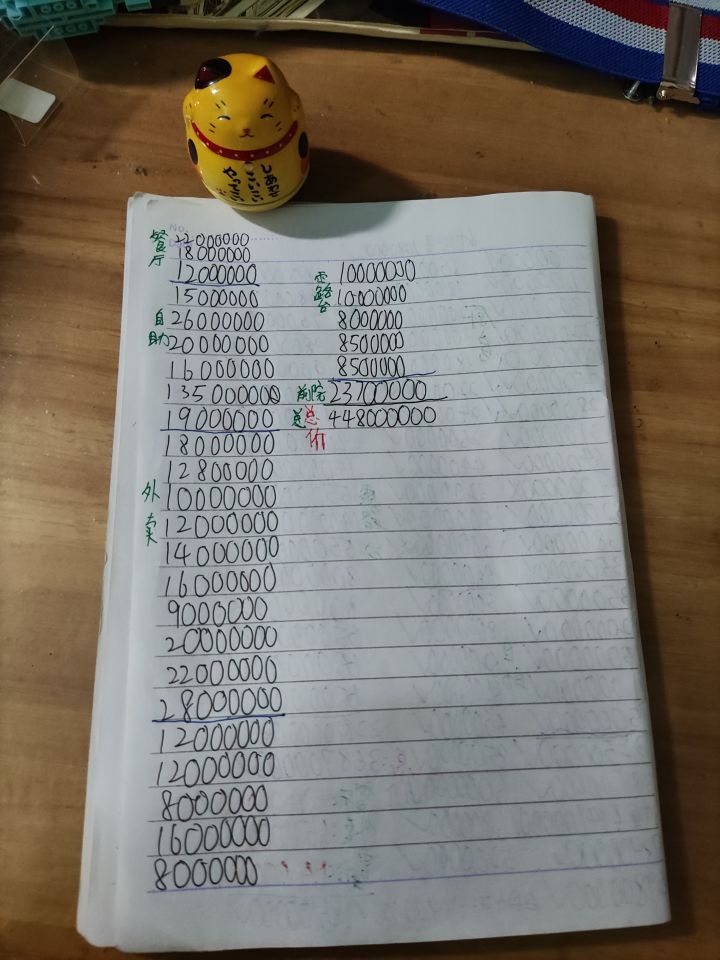 しあわせ
こいこい
やってこい
No.
餐厅
22000000
18000000
12000000
15000000
自助
26000000
20000000
16000000
135000000
19000000
18000000
12800000
外卖
10000000
12000000
14000000
16000000
9000000
20000000
22000000
28000000
12000000
12000000
8000000
16000000
8000000
露台
10000000
10000000
8000000
8500000
8500000
前院 23700000
总 总价 448000000